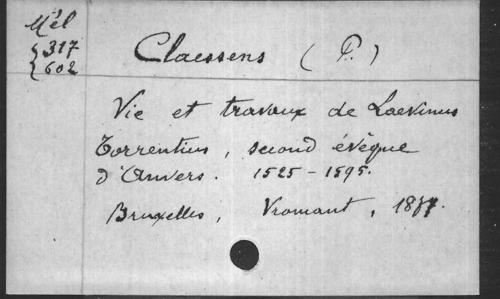 Mél
317
602
Claessens (P.)
Vie et travaux de Laevinus
Torrentius, second évêque
d'Anvers. 1525-1595.
Bruxelles, Vromant,